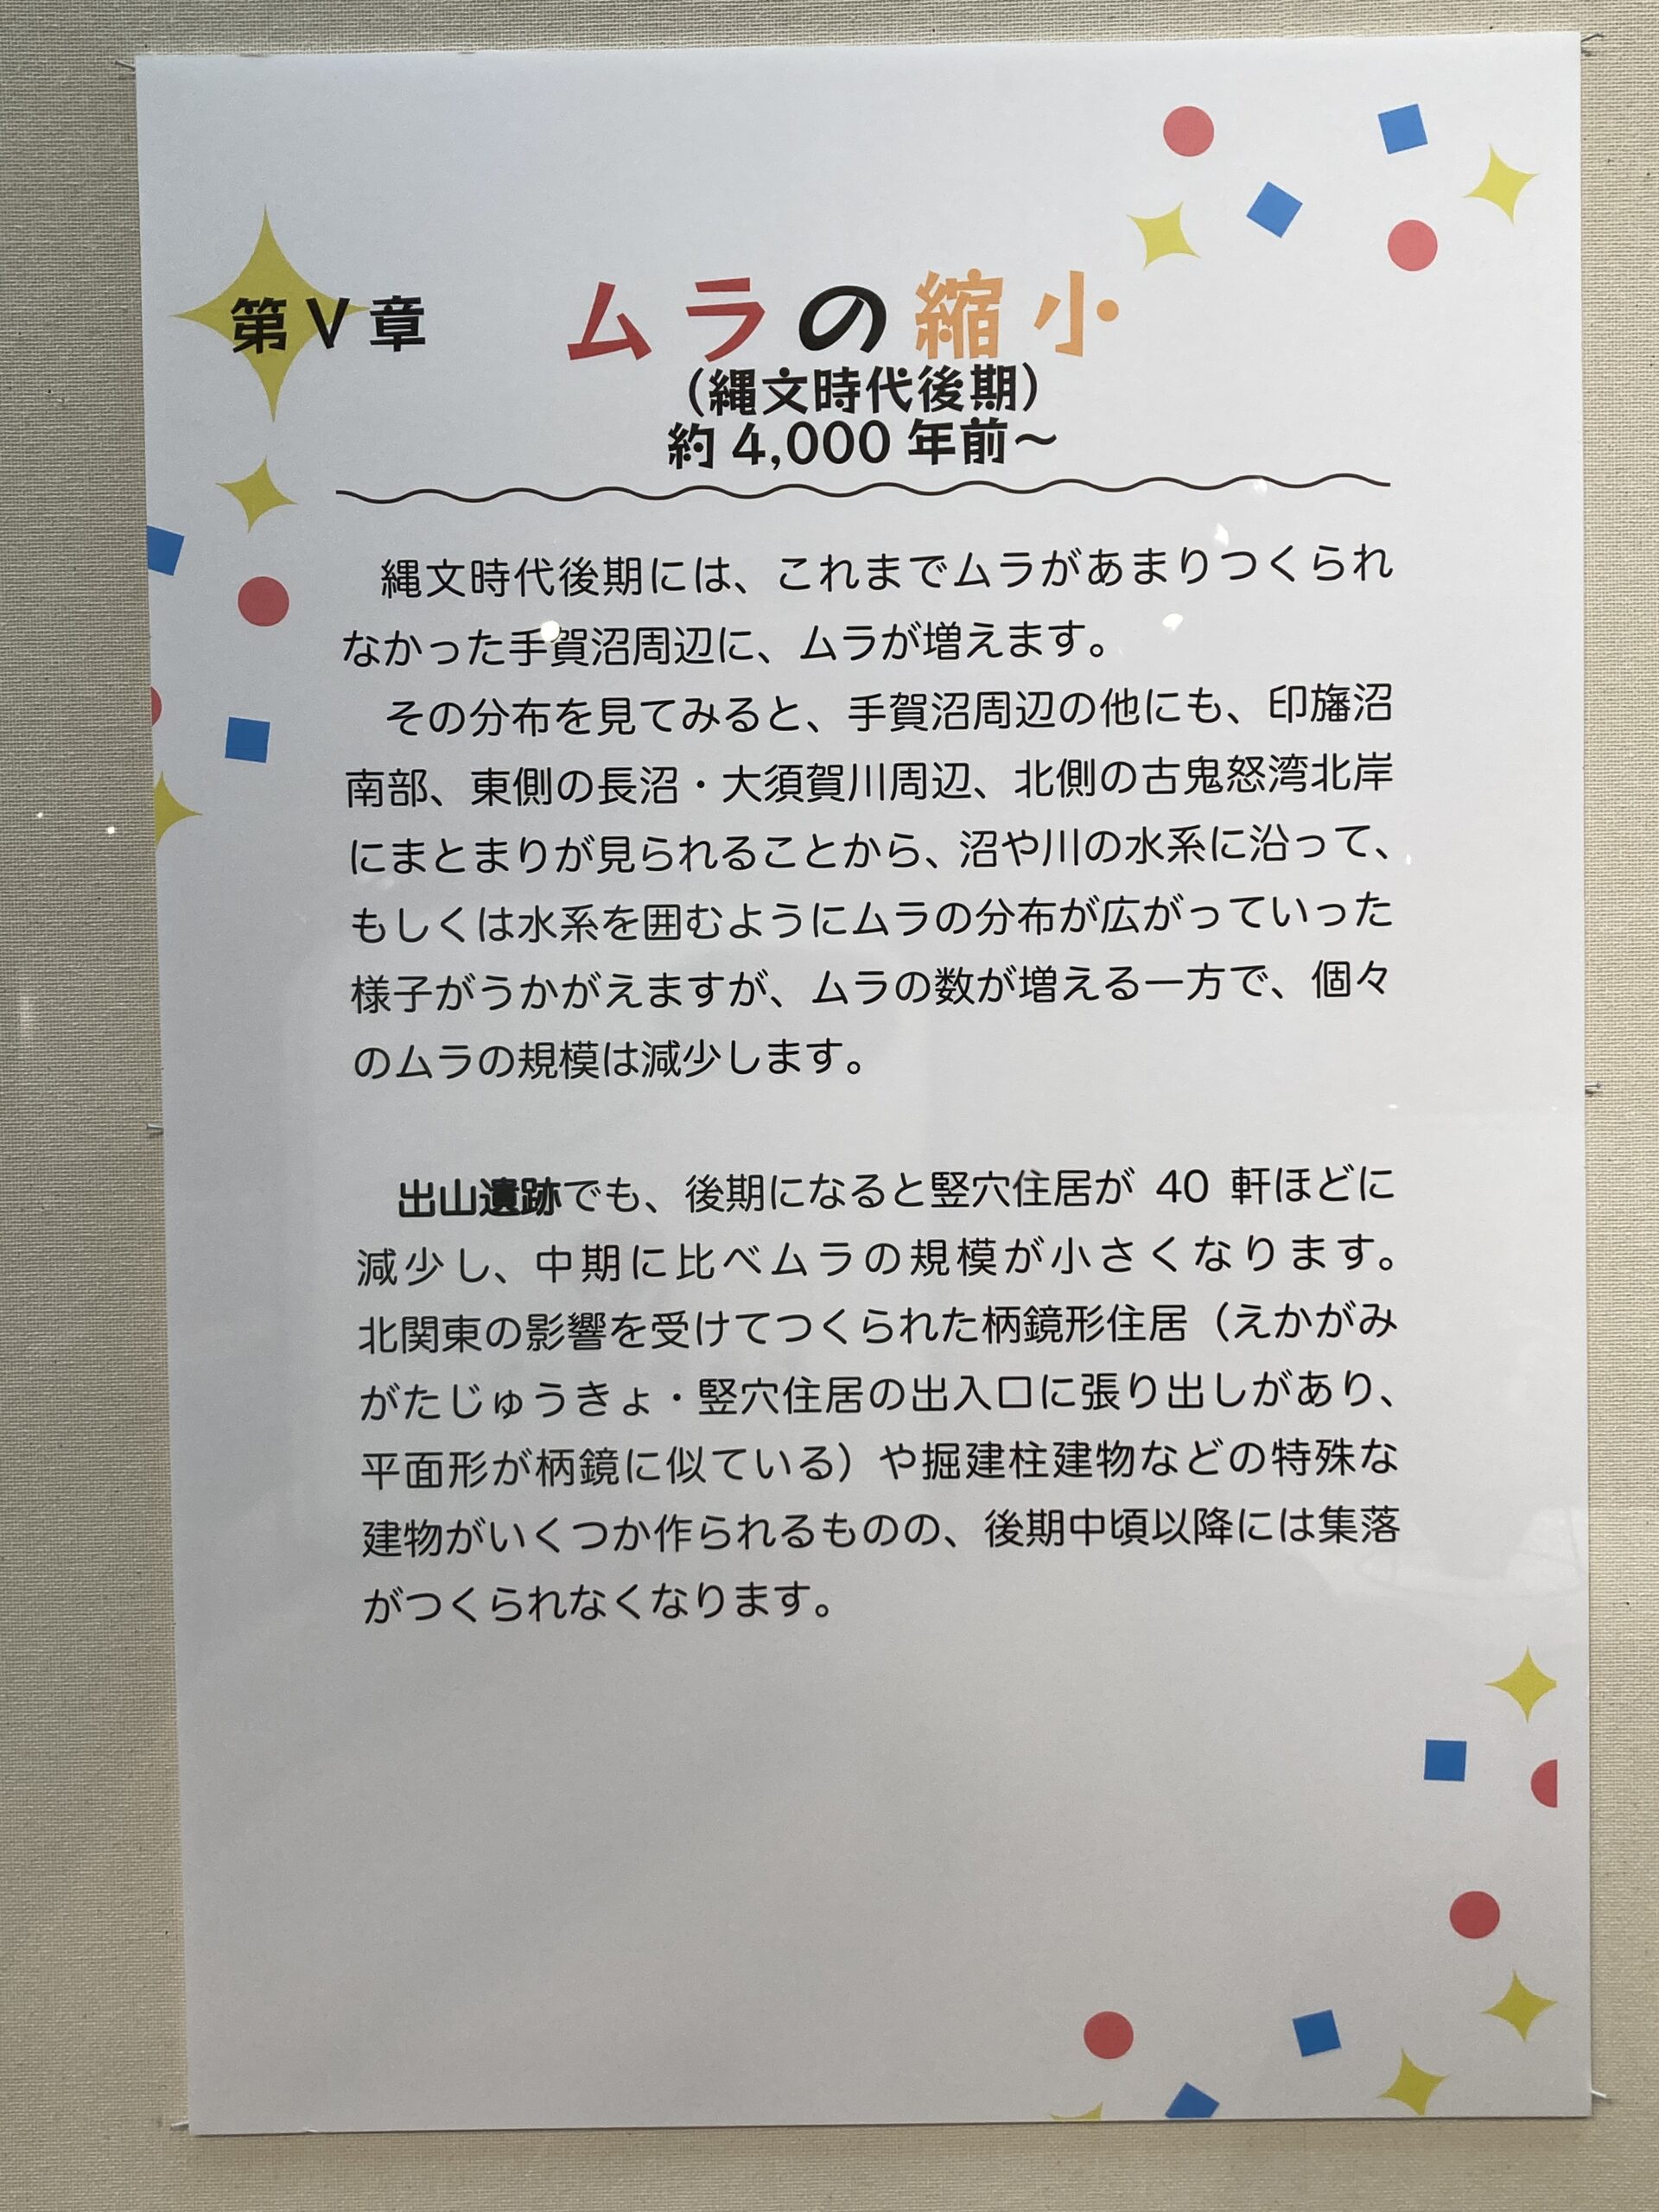 第Ⅴ章 ムラの縮小
(縄文時代後期)
約4,000年前～
縄文時代後期には、これまでムラがあまりつくられ
なかった手賀沼周辺に、ムラが増えます。
その分布を見てみると、手賀沼周辺の他にも、印旛沼
南部、東側の長沼・大須賀川周辺、北側の古鬼怒湾北岸
にまとまりが見られることから、沼や川の水系に沿って、
もしくは水系を囲むようにムラの分布が広がっていった
様子がうかがえますが、ムラの数が増える一方で、個々
のムラの規模は減少します。
出山遺跡でも、後期になると竪穴住居が 40 軒ほどに
減少し、中期に比べムラの規模が小さくなります。
北関東の影響を受けてつくられた柄鏡形住居（えかがみ
がたじゅうきょ・竪穴住居の出入口に張り出しがあり、
平面形が柄鏡に似ている）や掘建柱建物などの特殊な
建物がいくつか作られるものの、後期中頃以降には集落
がつくられなくなります。